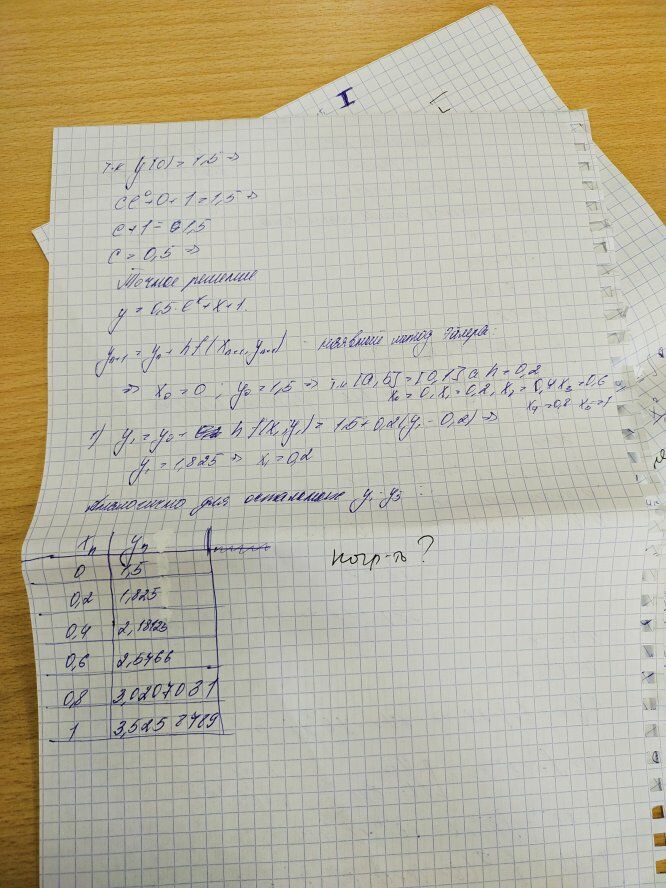 т.к y(0) = 1,5 ⇒
Ce⁰+0+1 = 1,5 ⇒
C+1 = 1,5
C = 0,5 ⇒
Точное решение
y = 0,5·eˣ+x+1.
yₙ₊₁ = yₙ + hf(xₙ₊₁, yₙ₊₁) - неявный метод Эйлера:
⇒ x₀ = 0 ; y₀ = 1,5 ⇒ т.к [a,b] = [0,1] а h = 0,2
x₀ = 0, x₁ = 0,2, x₂ = 0,4 x₃ = 0,6
x₄ = 0,8 x₅ = 1
1) y₁ = y₀ + h f(x₁,y₁) = 1,5 + 0,2(y₁ - 0,2) ⇒
y₁ = 1,825 ⇒ x₁ = 0,2
Аналогично для остальных
xₙ | yₙ
0 | 1,5
0,2 | 1,825
0,4 | 2,18125
0,6 | 2,5766
0,8 | 3,0207031
1 | 3,5258789
погр-ть?
I